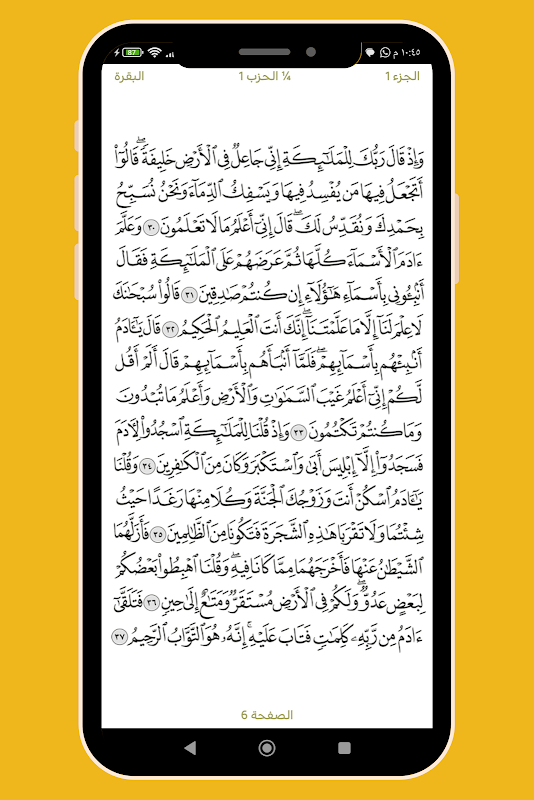 ١٠:٤٥ م
87
الجزء 1
¼ الحزب 1
البقرة
وَإِذْ قَالَ رَبُّكَ لِلْمَلَـٰٓئِكَةِ إِنِّى جَاعِلٌ فِى ٱلْأَرْضِ خَلِيفَةً ۖ قَالُوٓا۟
أَتَجْعَلُ فِيهَا مَن يُفْسِدُ فِيهَا وَيَسْفِكُ ٱلدِّمَآءَ وَنَحْنُ نُسَبِّحُ
بِحَمْدِكَ وَنُقَدِّسُ لَكَ ۖ قَالَ إِنِّىٓ أَعْلَمُ مَا لَا تَعْلَمُونَ ٣٠ وَعَلَّمَ
ءَادَمَ ٱلْأَسْمَآءَ كُلَّهَا ثُمَّ عَرَضَهُمْ عَلَى ٱلْمَلَـٰٓئِكَةِ فَقَالَ
أَنۢبِـُٔونِى بِأَسْمَآءِ هَـٰٓؤُلَآءِ إِن كُنتُمْ صَـٰدِقِينَ ٣١ قَالُوا۟ سُبْحَـٰنَكَ
لَا عِلْمَ لَنَآ إِلَّا مَا عَلَّمْتَنَآ ۖ إِنَّكَ أَنتَ ٱلْعَلِيمُ ٱلْحَكِيمُ ٣٢ قَالَ يَـٰٓـَٔادَمُ
أَنۢبِئْهُم بِأَسْمَآئِهِمْ ۖ فَلَمَّآ أَنۢبَأَهُم بِأَسْمَآئِهِمْ قَالَ أَلَمْ أَقُل
لَّكُمْ إِنِّىٓ أَعْلَمُ غَيْبَ ٱلسَّمَـٰوَٰتِ وَٱلْأَرْضِ وَأَعْلَمُ مَا تُبْدُونَ
وَمَا كُنتُمْ تَكْتُمُونَ ٣٣ وَإِذْ قُلْنَا لِلْمَلَـٰٓئِكَةِ ٱسْجُدُوا۟ لِـَٔادَمَ
فَسَجَدُوٓا۟ إِلَّآ إِبْلِيسَ أَبَىٰ وَٱسْتَكْبَرَ وَكَانَ مِنَ ٱلْكَـٰفِرِينَ ٣٤ وَقُلْنَا
يَـٰٓـَٔادَمُ ٱسْكُنْ أَنتَ وَزَوْجُكَ ٱلْجَنَّةَ وَكُلَا مِنْهَا رَغَدًا حَيْثُ
شِئْتُمَا وَلَا تَقْرَبَا هَـٰذِهِ ٱلشَّجَرَةَ فَتَكُونَا مِنَ ٱلظَّـٰلِمِينَ ٣٥ فَأَزَلَّهُمَا
ٱلشَّيْطَـٰنُ عَنْهَا فَأَخْرَجَهُمَا مِمَّا كَانَا فِيهِ ۖ وَقُلْنَا ٱهْبِطُوا۟ بَعْضُكُمْ
لِبَعْضٍ عَدُوٌّ ۖ وَلَكُمْ فِى ٱلْأَرْضِ مُسْتَقَرٌّ وَمَتَـٰعٌ إِلَىٰ حِينٍ ٣٦ فَتَلَقَّىٰٓ
ءَادَمُ مِن رَّبِّهِۦ كَلِمَـٰتٍ فَتَابَ عَلَيْهِ ۚ إِنَّهُۥ هُوَ ٱلتَّوَّابُ ٱلرَّحِيمُ ٣٧
الصفحة 6